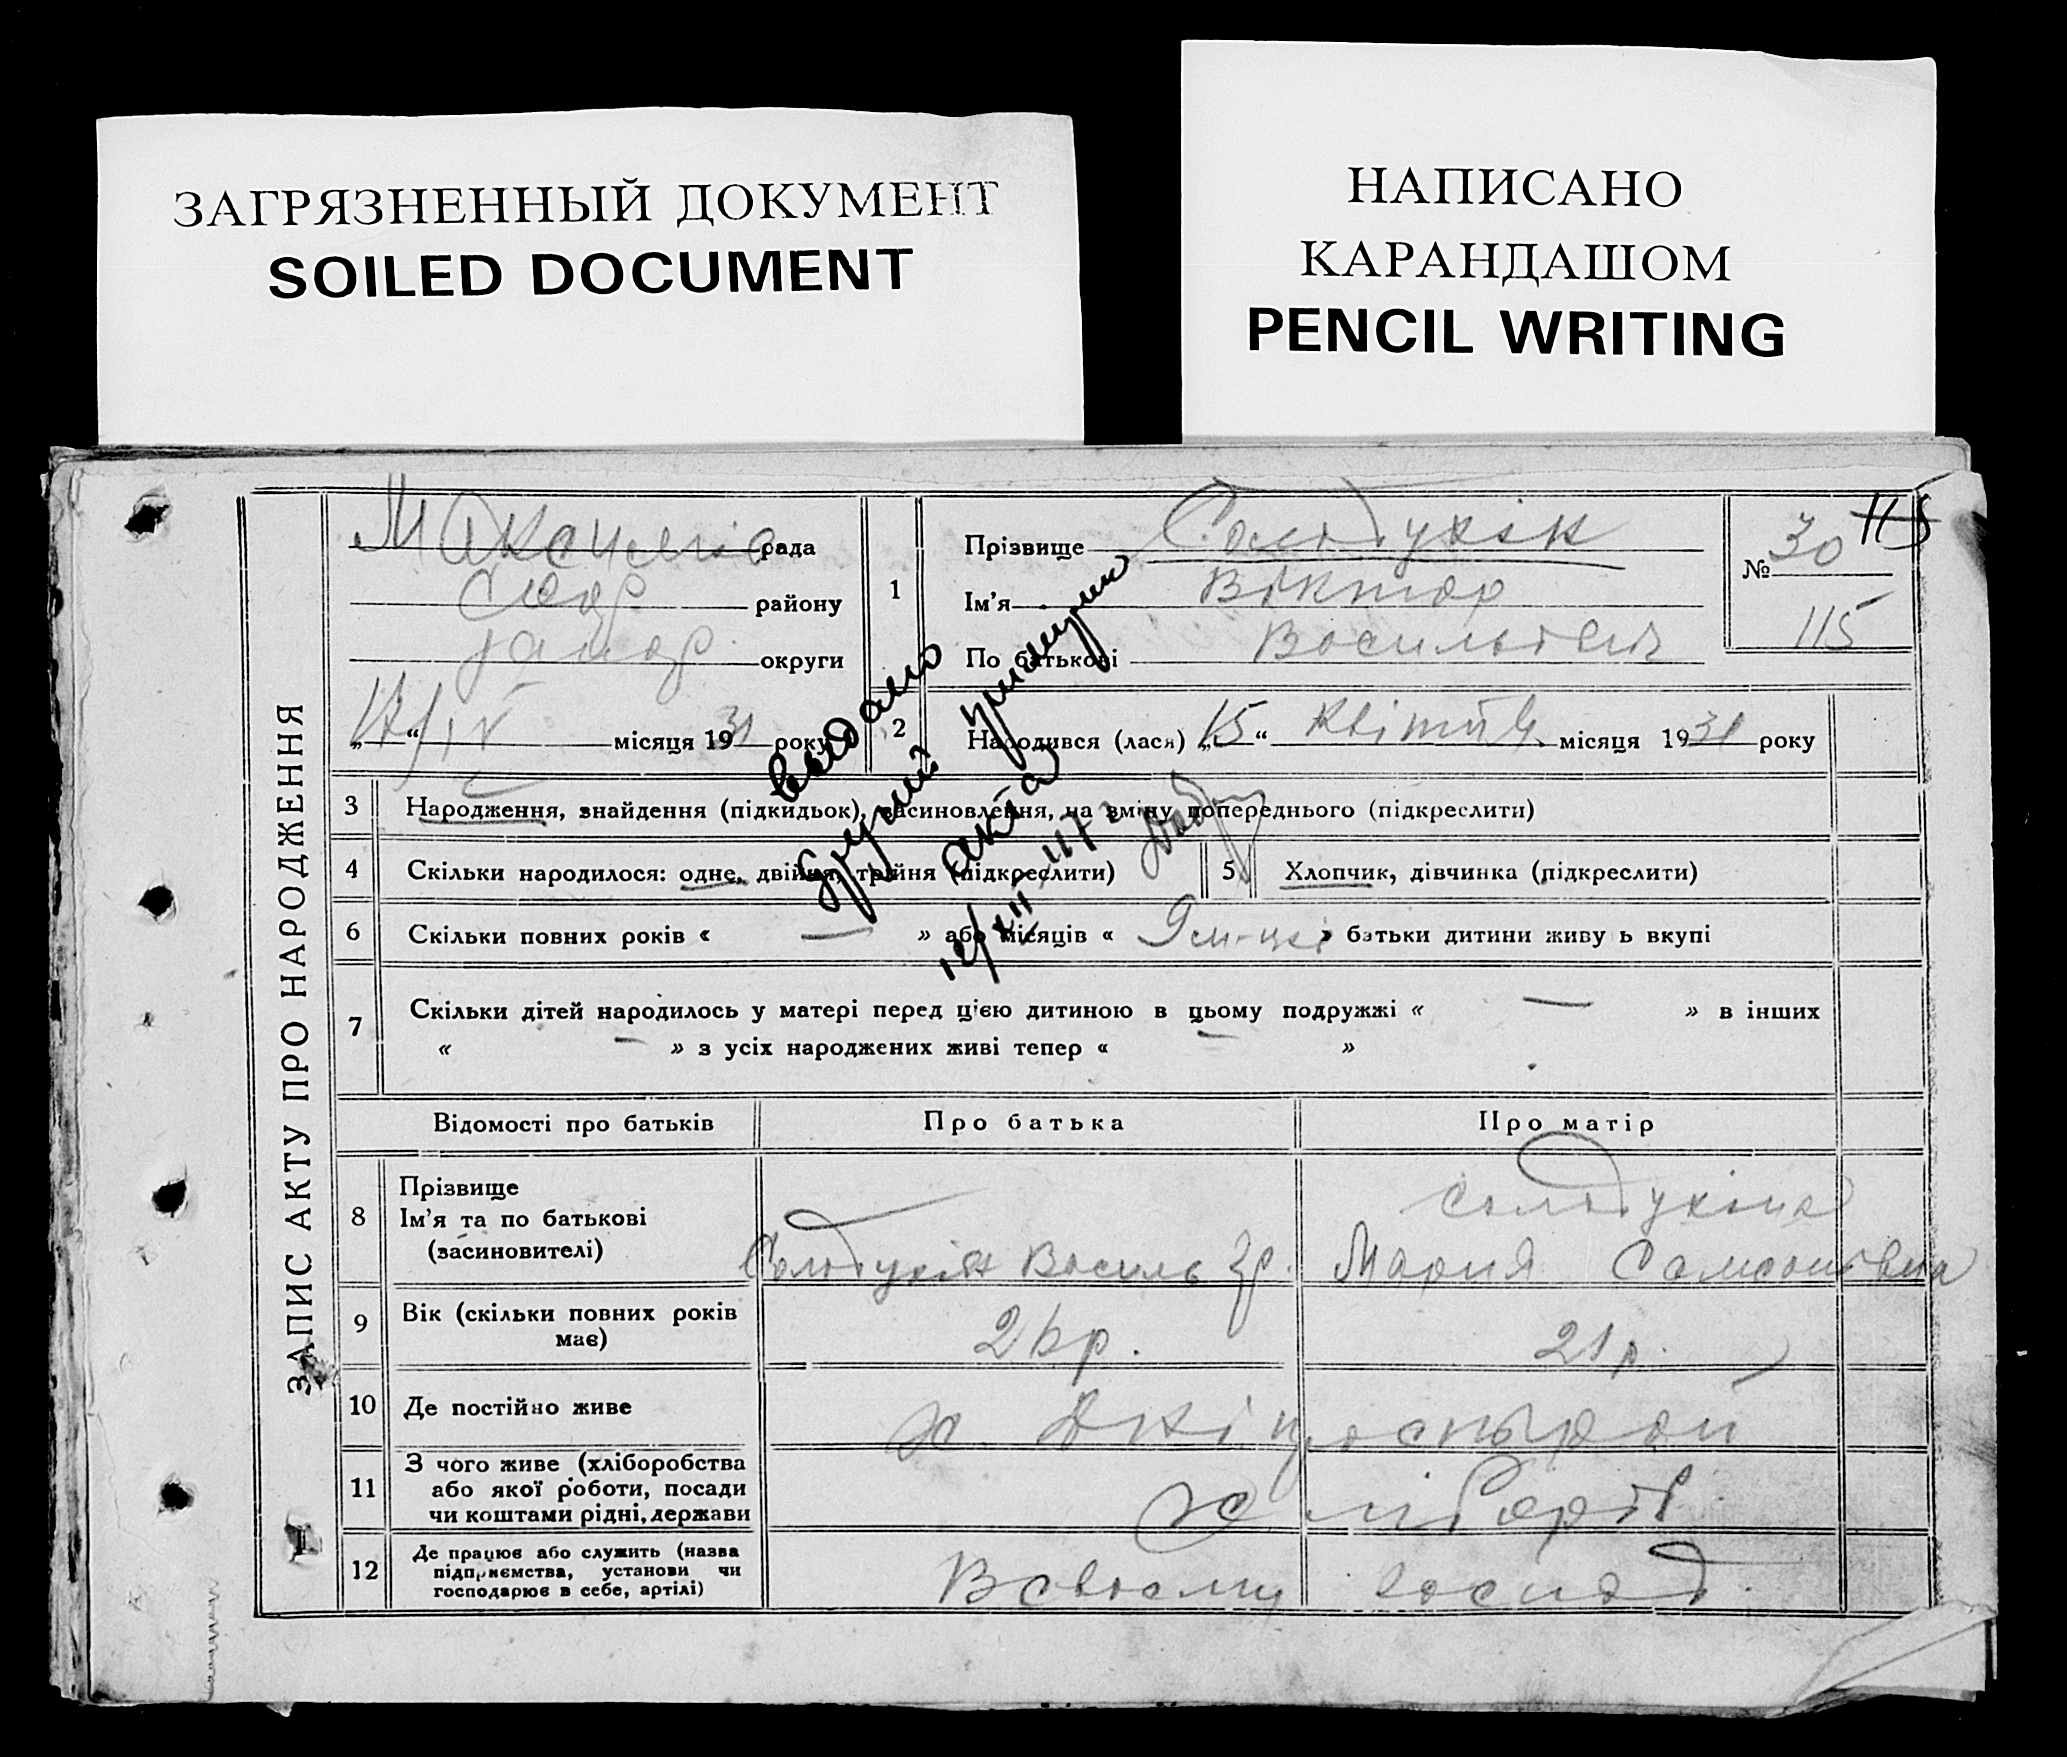 ЗАГРЯЗНЕННЫЙ ДОКУМЕНТ
SOILED DOCUMENT
НАПИСАНО
КАРАНДАШОМ
PENCIL WRITING
ЗАПИС АКТУ ПРО НАРОДЖЕННЯ
рада
району
округи
17/IV місяця 1931 року
1
Прізвище Солодухін
Ім'я Віктор
По батькові Васильович
№ 30 115
115
2
Народився (лася) „15“ Квітня місяця 1931 року
видано
другий примирник
акта
12/XII 47 г
3 Народження, знайдення (підкидьок), засиновлення, на зміну попереднього (підкреслити)
4 Скільки народилося: одне, двійня, трійня (підкреслити)
5 Хлопчик, дівчинка (підкреслити)
6 Скільки повних років « — » або місяців « 9 м-ців » батьки дитини живуть вкупі
7 Скільки дітей народилось у матері перед цією дитиною в цьому подружжі « — » в інших
« — » з усіх народжених живі тепер « — »
Відомості про батьків Про батька Про матір
8 Прізвище
Ім'я та по батькові
(засиновителі)
Солодухін Василь Гр.
Солодухіна
Мария Самсонівна
9 Вік (скільки повних років
має)
21р.
10 Де постійно живе
х.
11 З чого живе (хліборобства
або якої роботи, посади
чи коштами рідні, держави
хлібороб
12 Де працює або служить (назва
підприємства, установи чи
господарює в себе, артілі)
В своєму господ.
I